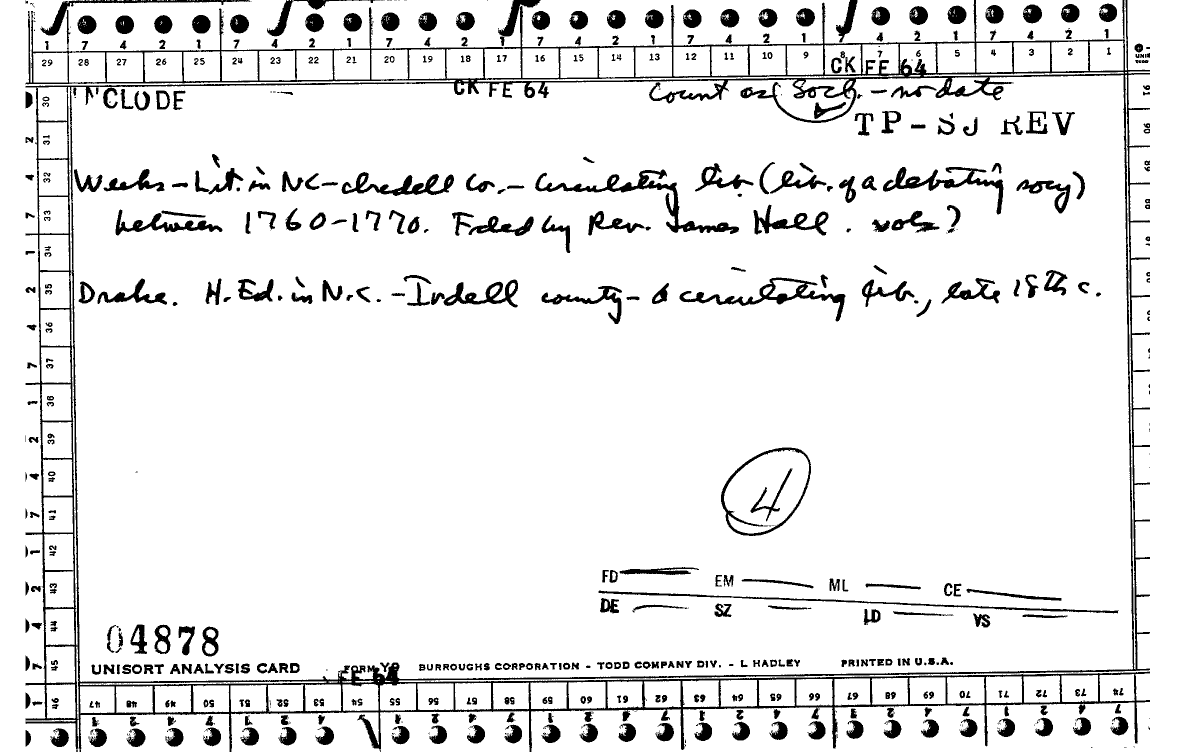 7 4 2 1 7 4 2 1 7 4 2 1 7 4 2 1 7 4 2 1 7 4 2 1
29 28 27 26 25 24 23 22 21 20 19 18 17 16 15 14 13 12 11 10 9 8 7 6 5 4 3 2 1
CK FE 64
CK FE 64
Count as Socl. - no date
NCLUDE
TP-SJ REV
Weeks - Lit. in NC - Iredell Co. - Circulating lib (lib. of a debating socy)
between 1760-1770. Fded by Rev. James Hall. vols?
Drake. H. Ed. in N.C. - Iredell county - a circulating lib., late 18th c.
4
FD EM ML CE
DE SZ LD VS
04878
UNISORT ANALYSIS CARD FORM Y9 BURROUGHS CORPORATION - TODD COMPANY DIV. - L HADLEY PRINTED IN U.S.A.
FE 64
30 31 32 33 34 35 36 37 38 39 40 41 42 43 44 45 46
47 48 49 50 51 52 53 54 55 56 57 58 59 60 61 62 63 64 65 66 67 68 69 70 71 72 73 74